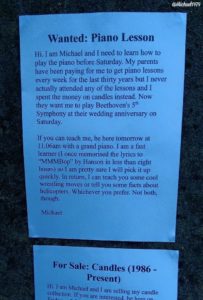 @Michael1979
Wanted: Piano Lesson
Hi, I am Michael and I need to learn how to
play the piano before Saturday. My parents
have been paying for me to get piano lessons
every week for the last thirty years but I never
actually attended any of the lessons and I
spent the money on candles instead. Now
they want me to play Beethoven's 5th
Symphony at their wedding anniversary on
Saturday.
If you can teach me, be here tomorrow at
11.06am with a grand piano. I am a fast
learner (I once memorised the lyrics to
"MMMBop" by Hanson in less than eight
hours) so I am pretty sure I will pick it up
quickly. In return, I can teach you some cool
wrestling moves or tell you some facts about
helicopters. Whichever you prefer. Not both,
though.
Michael
For Sale: Candles (1986 -
Present)
Hi, I am Michael and I am selling my candle
collection. If you are interested, be here on